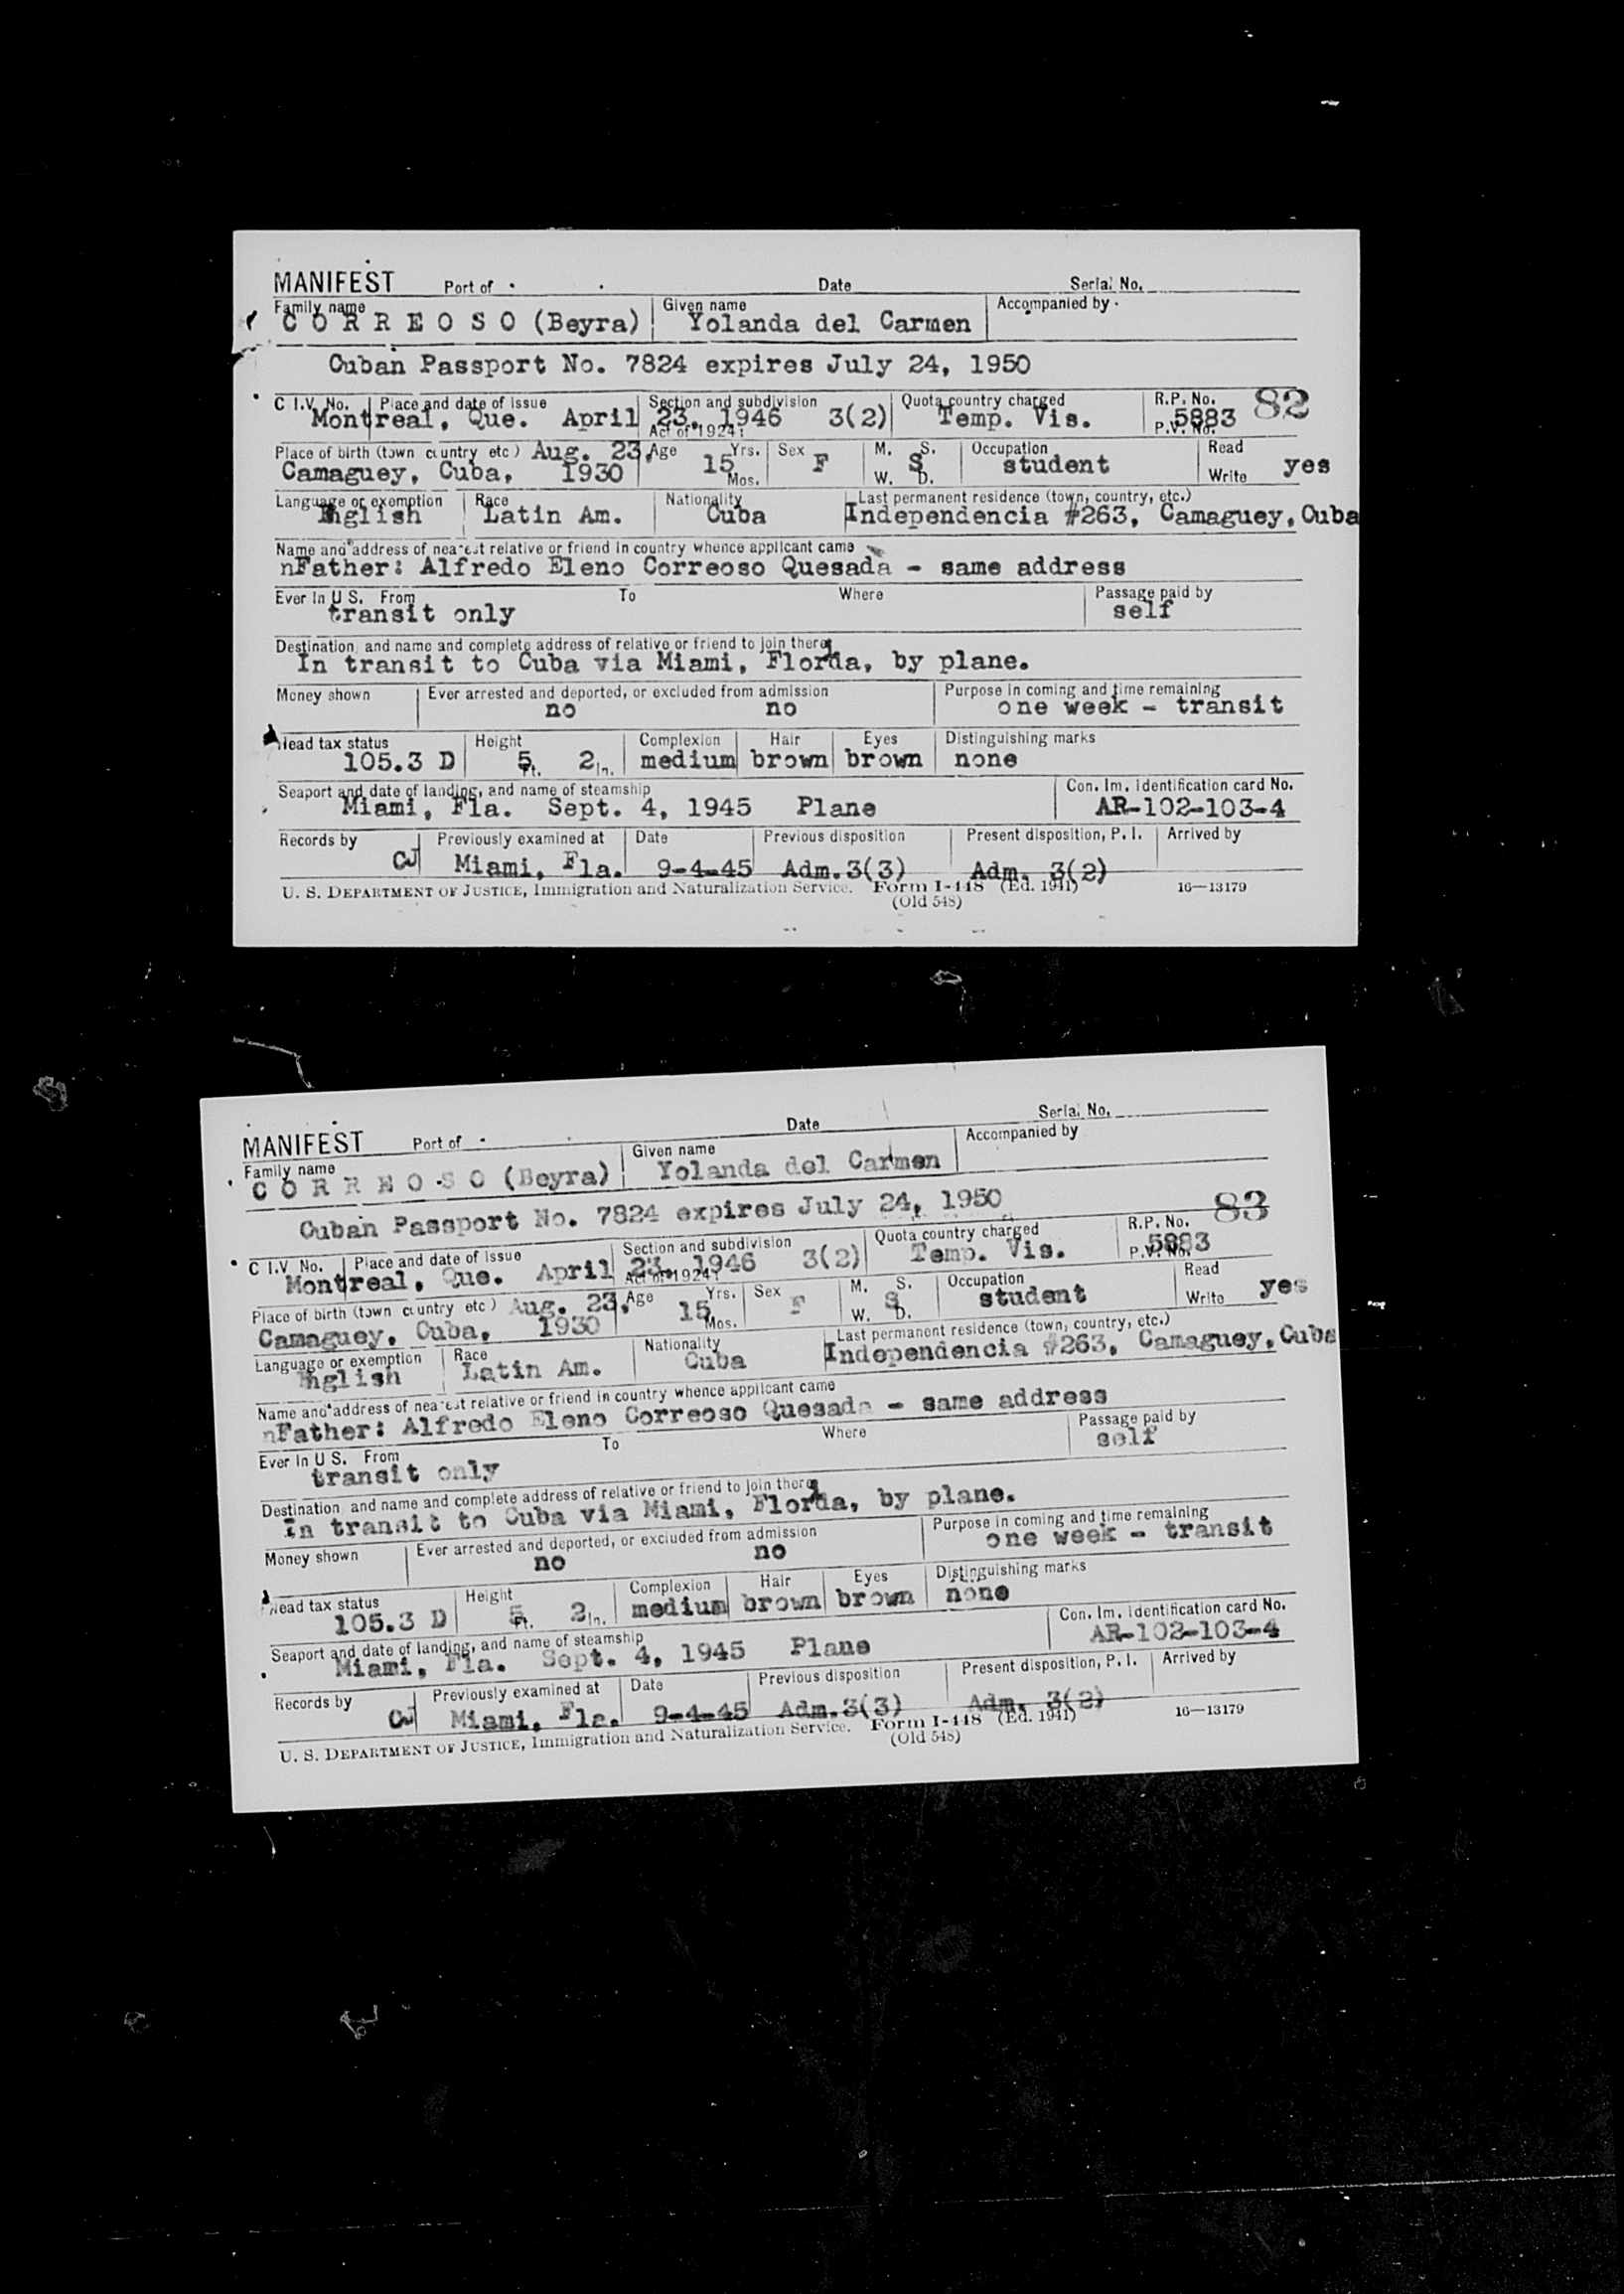 MANIFEST Port of Date Serial No.
Family name Given name Accompanied by
C O R R E O S O (Beyra) Yolanda del Carmen
Cuban Passport No. 7824 expires July 24, 1950
C I.V. No. Place and date of issue Section and subdivision Quota country charged R.P. No. 82
Montreal, Que. April 23, 1946 3(2) Temp. Vis. 5883
Act of 1924: P.V. No.
Place of birth (town country etc) Aug. 23, Age Yrs. Sex M. S. Occupation Read
Camaguey, Cuba, 1930 15 F S student yes
Mos. W. D. Write
Language or exemption Race Nationality Last permanent residence (town, country, etc.)
English Latin Am. Cuba Independencia #263, Camaguey, Cuba
Name and address of nearest relative or friend in country whence applicant came
nFather: Alfredo Eleno Correoso Quesada - same address
Ever in U S. From To Where Passage paid by
transit only self
Destination, and name and complete address of relative or friend to join there
In transit to Cuba via Miami, Florda, by plane.
Money shown Ever arrested and deported, or excluded from admission Purpose in coming and time remaining
no no one week - transit
Head tax status Height Complexion Hair Eyes Distinguishing marks
105.3 D 5 Ft. 2 In. medium brown brown none
Seaport and date of landing, and name of steamship Con. Im. Identification card No.
Miami, Fla. Sept. 4, 1945 Plane AR-102-103-4
Records by Previously examined at Date Previous disposition Present disposition, P. I. Arrived by
CJ Miami, Fla. 9-4-45 Adm.3(3) Adm. 3(2)
U. S. DEPARTMENT OF JUSTICE, Immigration and Naturalization Service. Form I-448 (Ed. 1941) 16—13179
(Old 548)
MANIFEST Port of Date Serial No.
Family name Given name Accompanied by
C O R R E O S O (Beyra) Yolanda del Carmen
Cuban Passport No. 7824 expires July 24, 1950 83
C I.V No. Place and date of issue Section and subdivision Quota country charged R.P. No.
Montreal, Que. April 23, 1946 3(2) Temp. Vis. 5883
Act of 1924: P.V. No.
Place of birth (town country etc) Aug. 23, Age Yrs. Sex M. S. Occupation Read
Camaguey, Cuba, 1930 15 F S student yes
Mos. W. D. Write
Language or exemption Race Nationality Last permanent residence (town, country, etc.)
English Latin Am. Cuba Independencia #263, Camaguey, Cuba
Name and address of nearest relative or friend in country whence applicant came
nFather: Alfredo Eleno Correoso Quesada - same address
Ever in U S. From To Where Passage paid by
transit only self
Destination, and name and complete address of relative or friend to join there
In transit to Cuba via Miami, Florda, by plane.
Money shown Ever arrested and deported, or excluded from admission Purpose in coming and time remaining
no no one week - transit
Head tax status Height Complexion Hair Eyes Distinguishing marks
105.3 D 5 Ft. 2 In. medium brown brown none
Seaport and date of landing, and name of steamship Con. Im. Identification card No.
Miami, Fla. Sept. 4, 1945 Plane AR-102-103-4
Records by Previously examined at Date Previous disposition Present disposition, P. I. Arrived by
CJ Miami, Fla. 9-4-45 Adm.3(3) Adm. 3(2)
U. S. DEPARTMENT OF JUSTICE, Immigration and Naturalization Service. Form I-448 (Ed. 1941) 16—13179
(Old 548)